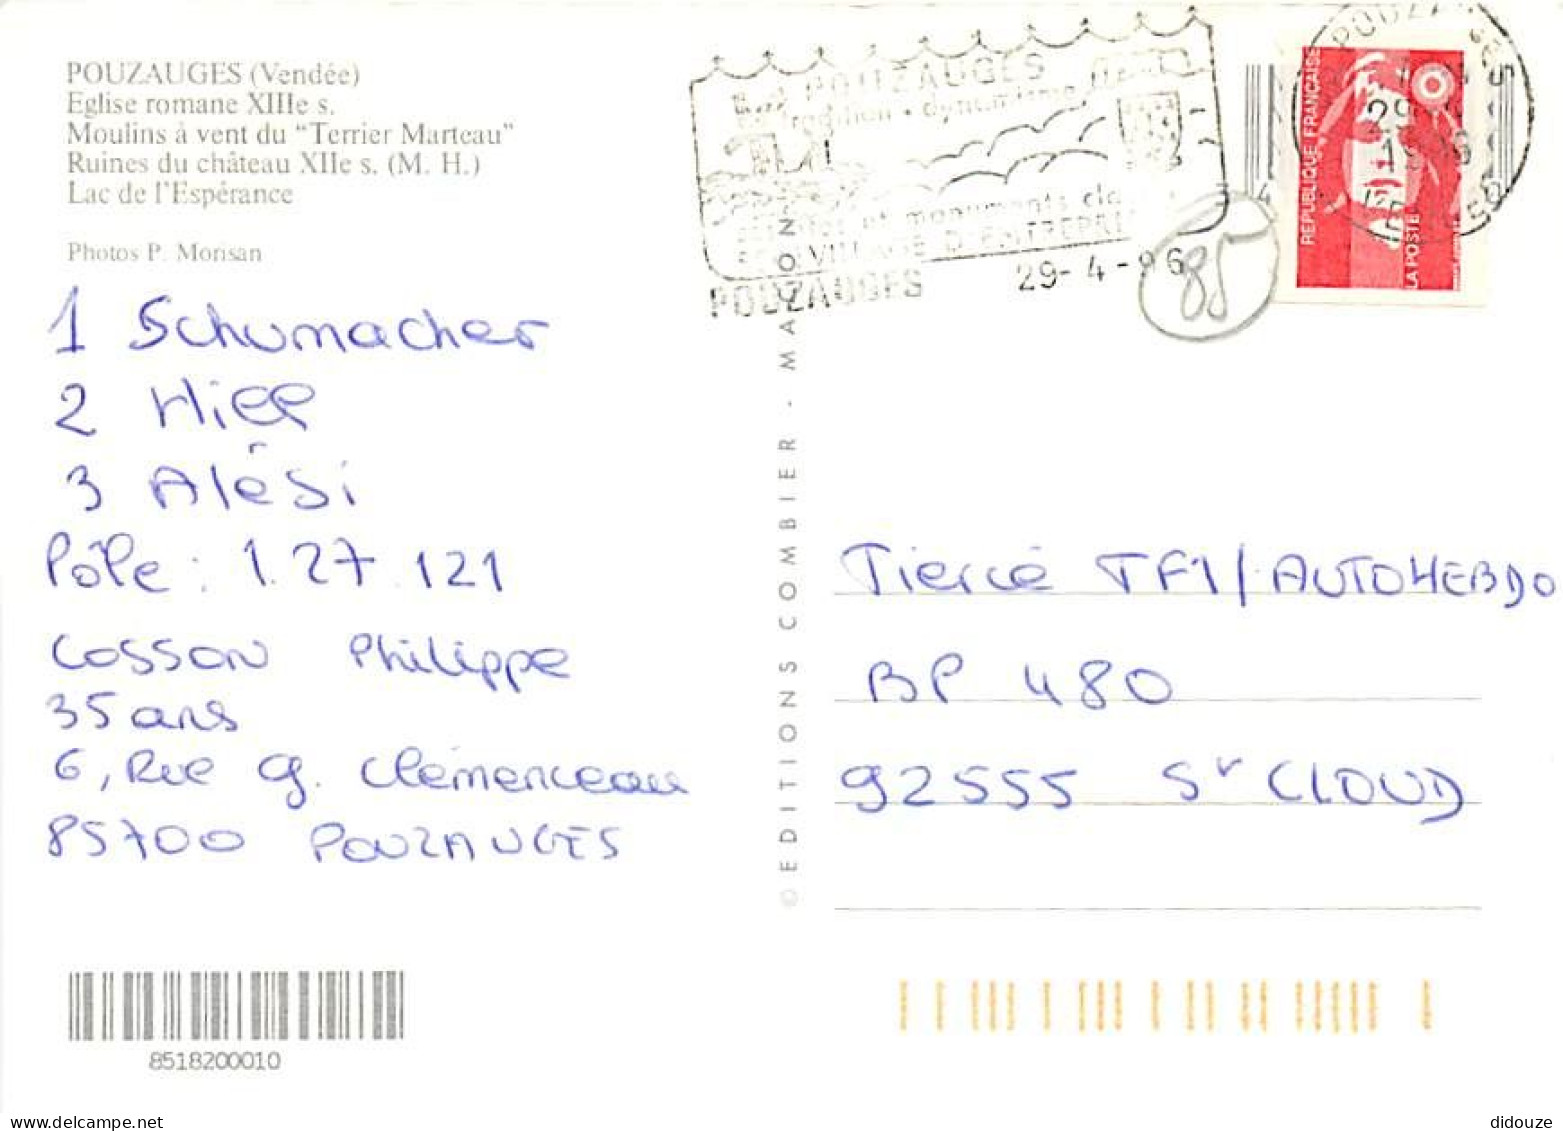 POUZAUGES (Vendée)
Eglise romane XIIIe s.
Moulins à vent du “Terrier Marteau”
Ruines du château XIIe s. (M. H.)
Lac de l'Espérance
Photos P. Morisan
1 Schumacher
2 Hill
3 Alési
Pôle : 1.27.121
Cosson Philippe
35 ans
6, Rue G. Clémenceau
85700 POUZAUGES
8518200010
© EDITIONS COMBIER - MACON
POUZAUGES
tradition - dynamisme
et monuments
VILLAGE D'ENTREPRI
POUZAUGES
29-4-96
85
REPUBLIQUE FRANÇAISE
LA POSTE
Tiercé TF1/AUTOHEBDO
BP 480
92555 St CLOUD
www.delcampe.net
didouze